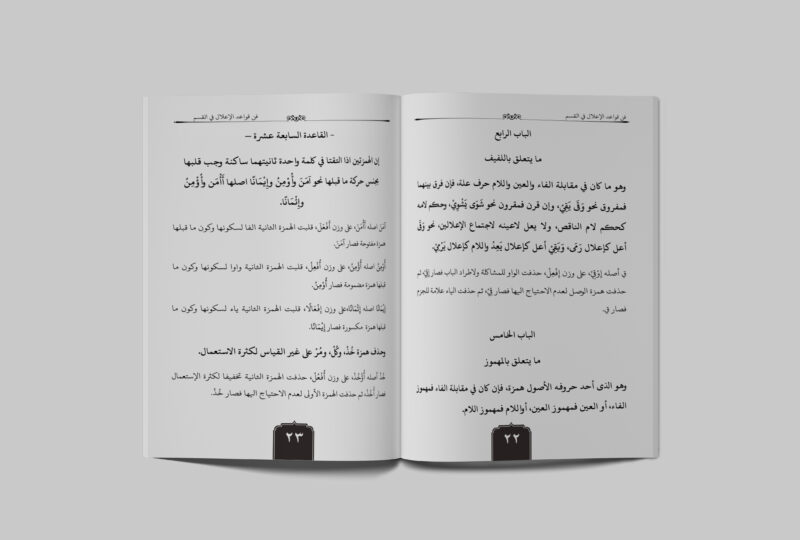 فن قواعد الإعلال في القسم
الباب الرابع
ما يتعلق باللفيف
وهو ما كان في مقابلة الفاء والعين واللام حرف علة، فإن فرق بينهما
فمفروق نحو وَقَى يَقِيْ، وإن قرن فمقرون نحو شَوَى يَشْوِيْ، وحكم لامه
كحكم لام الناقص، ولا يعل لاعينه لاجتماع الإعلالين، نحو وَقَى
أعل كإعلال رَمَى، وَيَقِيْ أعل كإعلال يَعِدُ واللام كإعلال يَرْمِيْ.
قِ أصله اِوْقِيْ، على وزن اِفْعِلْ، حذفت الواو للمشاكلة ولاطراد الباب فصار اِقِيْ ثم
حذفت همزة الوصل لعدم الاحتياج اليها فصار قِيْ، ثم حذفت الياء علامة للجزم
فصار قِ.
الباب الخامس
ما يتعلق بالمهموز
وهو الذى أحد حروفه الأصول همزة، فإن كان في مقابلة الفاء فمهموز
الفاء، أو العين فمهموز العين، أواللام فمهموز اللام.
٢٢
فن قواعد الإعلال في القسم
- القاعدة السابعة عشرة –
إن الهمزتين اذا التقتا في كلمة واحدة ثانيتهما ساكنة وجب قلبها
بجنس حركة ما قبلها نحو آمَنَ وأُوْمِنُ وإِيْمَانًا اصلها أَأْمَن وأُؤْمِنُ
وإِئْمَانًا.
آمَنَ اصله أَأْمَنَ، على وزن أَفْعَلَ، قلبت الهمزة الثانية الفا لسكونها وكون ما قبلها
همزة مفتوحة فصار آمَنَ.
أُوْمِنُ اصله أُؤْمِنُ، على وزن أُفْعِلُ، قلبت الهمزة الثانية واوا لسكونها وكون ما
قبلها همزة مضمومة فصار أُوْمِنُ.
إِيْمَانًا اصله إِئْمَانًا،على وزن إِفْعَالًا، قلبت الهمزة الثانية ياء لسكونها وكون ما
قبلها همزة مكسورة فصار إِيْمَانًا.
وحذف همزة خُذْ، وكُلْ، ومُرْ على غير القياس لكثرة الاستعمال.
خُذْ أصله أُؤْخُذْ، على وزن أُفْعُلْ، حذفت الهمزة الثانية تخفيفا لكثرة الإستعمال
فصار أُخُذْ، ثم حذفت الهمزة الأولى لعدم الاحتياج اليها فصار خُذْ.
٢٣